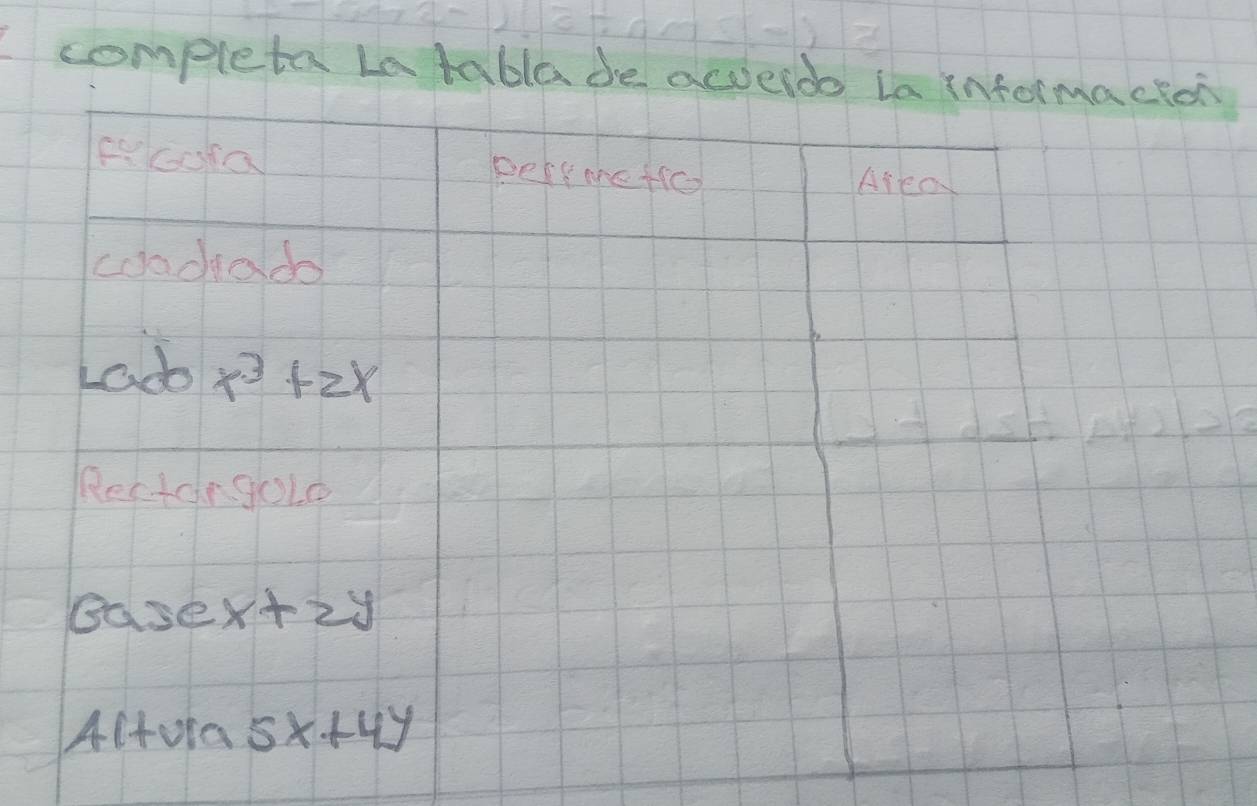 completa La tabla de acuerdo La informacion
Figura Perimetro Area
cuadrado
Lado x³ + 2x
Rectangulo
Base x + 2y
Altura 5x + 4y